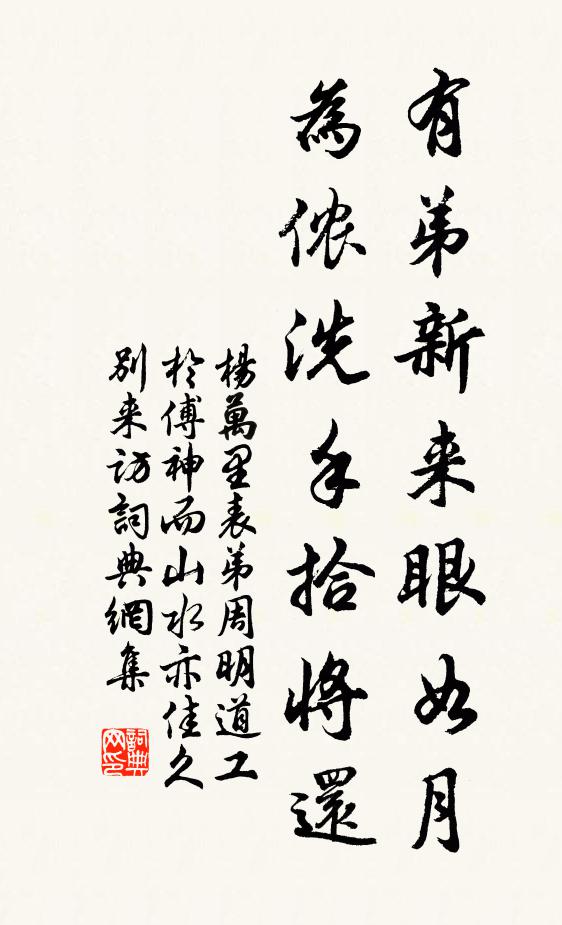 有弟新来眼如月
為侬洗手拾將還
楊萬里表弟周明道工
於傅神而山水亦佳久
別来訪詞典網集
詞典
网印